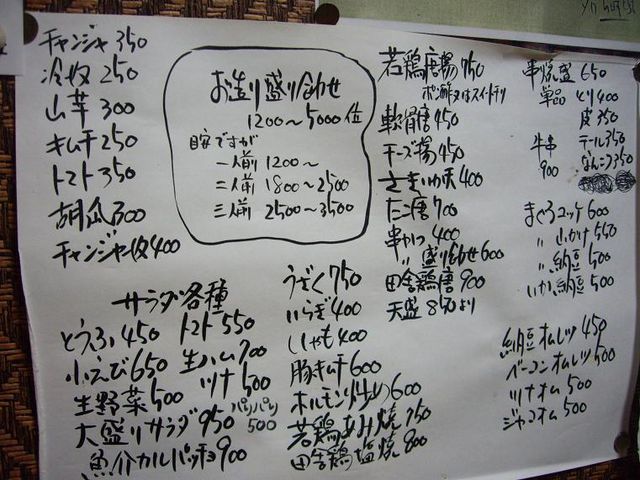 チャンジャ 350
冷奴 250
山芋 300
キムチ 250
トマト 350
胡瓜 300
チャンジャ奴 400
お造り盛り合わせ
1200〜5000位
目安ですが
一人前 1200〜
二人前 1800〜2500
三人前 2500〜3500
サラダ各種
とうふ 450
トマト 550
小えび 650
生ハム 700
生野菜 500
ツナ 500
大盛りサラダ 950
パリパリ 500
魚介カルパッチョ 900
うざく 750
いらぎ 400
ししゃも 400
豚キムチ 600
ホルモン炒め 600
若鶏あみ焼 750
田舎鶏塩焼 800
若鶏唐揚 750
ポン酢又はスイートチリ
軟骨唐 450
チーズ揚 450
さきいか天 400
たこ唐 700
串かつ 400
〃 盛り合わせ 600
田舎鶏唐 900
天盛 850より
串焼盛 650
単品 とり 400
皮 350
牛串 900
テール 350
なんこつ 350
まぐろユッケ 600
〃 山かけ 550
〃 納豆 500
いか納豆 500
納豆オムレツ 450
ベーコンオムレツ 500
ツナオム 500
ジャコオム 500